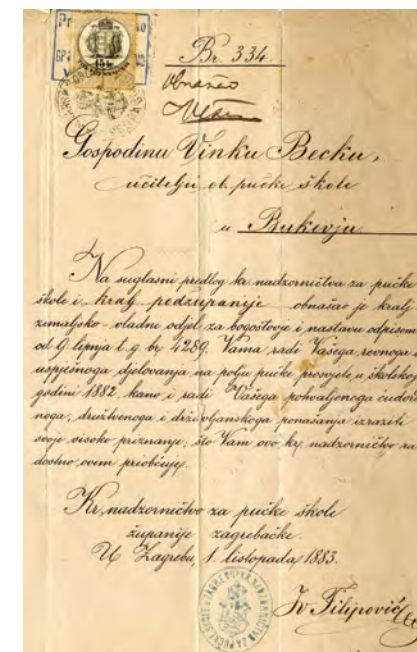 15 kr
Br. 334.
Gospodinu Vinku Becku,
učitelju ob. pučke škole
u Bukevju
Na suglasni predlog kr. nadzorničtva za pučke
škole i kralj. podžupanije obnašao je kralj.
zemaljsko-vladne odjel za bogoštovje i nastavu odpisom
od 9. lipnja t. g. br. 4289. Vama radi Vašega revnoga i
uspješnoga djelovanja na polju pučke prosvjete u školskoj
godini 1882. kano i radi Vašega pohvaljenoga ćudored
noga, družtvenoga i državljanskoga ponašanja izraziti
svoje visoko priznanje; što Vam ovo kr. nadzorničtvo ra
dostno ovim priobćuje.
Kr. nadzorničtvo za pučke škole
županije zagrebačke.
U Zagrebu, 1. listopada 1883.
Iv Filipović